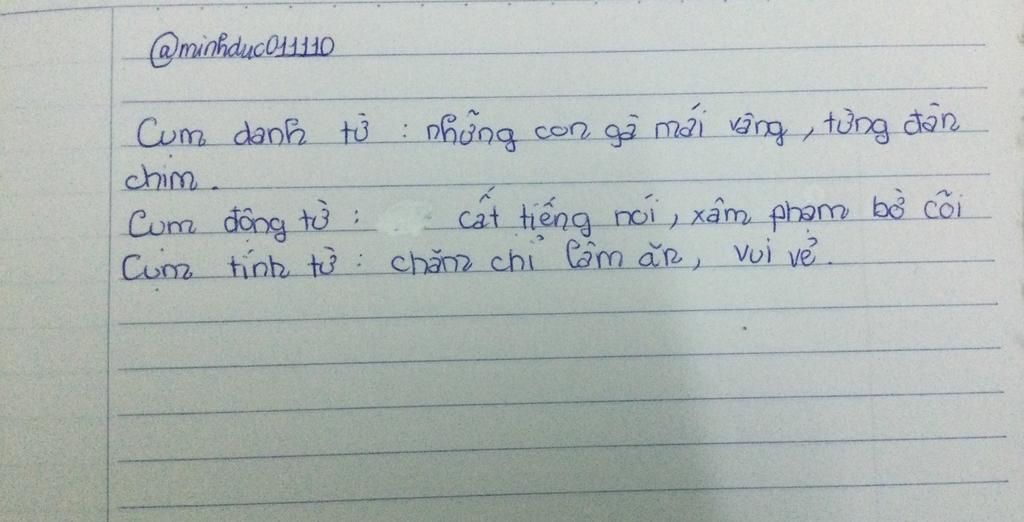 @minhduc011110
Cụm danh từ : những con gà mái vàng, từng đàn
chim.
Cụm động từ : cất tiếng nói, xâm phạm bờ cõi
Cụm tính từ : chăm chỉ làm ăn, vui vẻ.